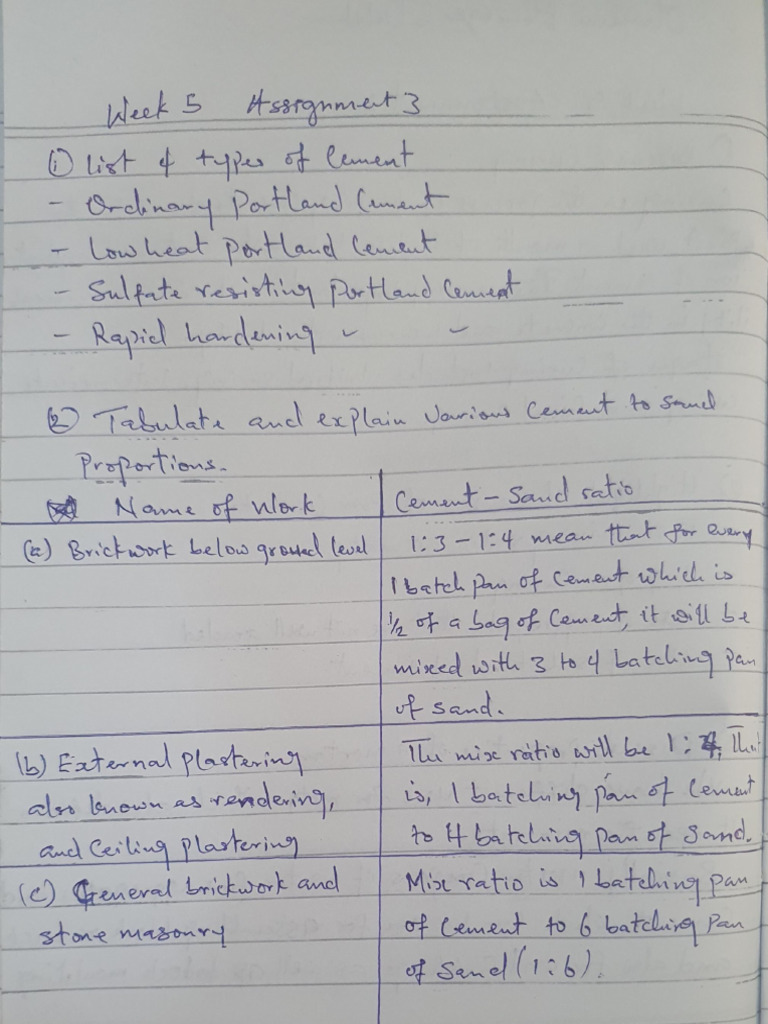 Week 5 Assignment 3
① List 4 types of Cement
- Ordinary Portland Cement
- Low heat Portland Cement
- Sulfate resisting Portland Cement
- Rapid hardening " "
② Tabulate and explain various Cement to Sand
Proportions.
Name of Work
Cement - Sand ratio
(a) Brickwork below ground level
1:3 - 1:4 mean that for every
1 batch pan of Cement which is
1/2 of a bag of Cement, it will be
mixed with 3 to 4 batching pan
of sand.
(b) External plastering
also known as rendering,
and Ceiling plastering
The mix ratio will be 1:4, That
is, 1 batching pan of Cement
to 4 batching pan of sand.
(c) General brickwork and
stone masonry
Mix ratio is 1 batching pan
of Cement to 6 batching pan
of Sand (1:6).